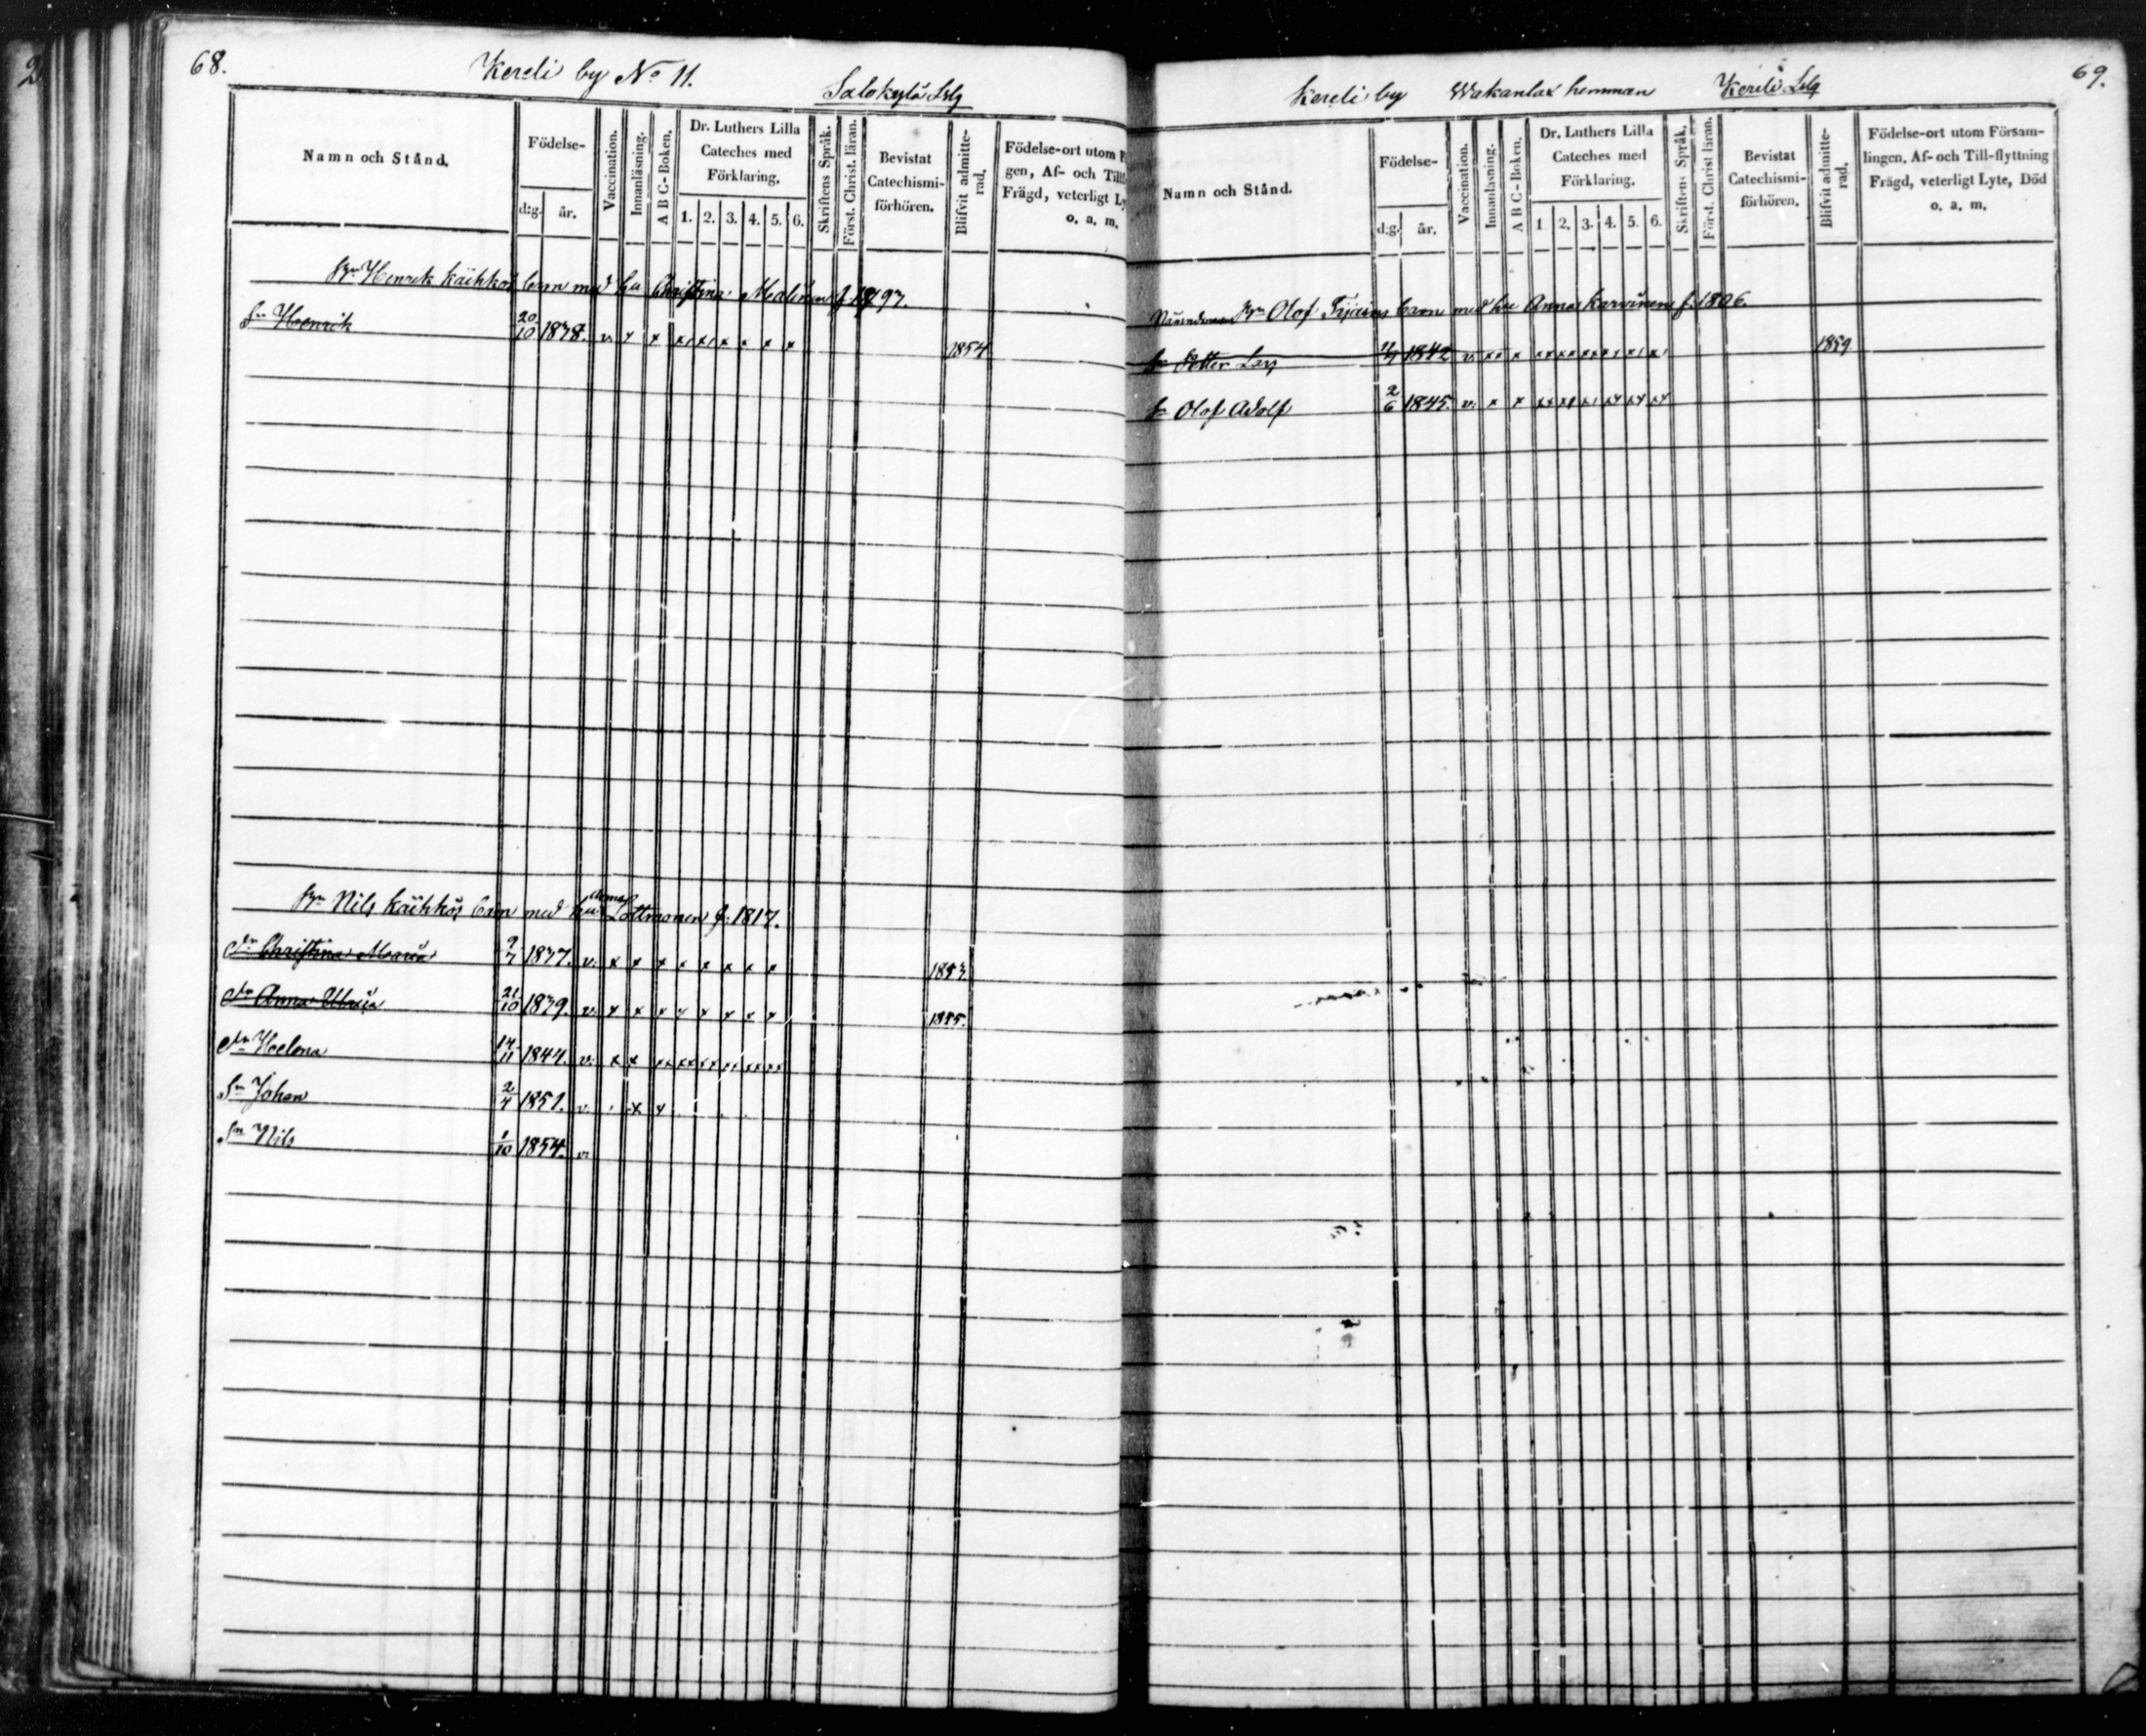 68.
Kereli by No 11.
Salokylä Lslg
Namn och Stånd.
Födelse-
d:g. år.
Vaccination.
Innanläsning.
A B C-Boken.
Dr. Luthers Lilla
Cateches med
Förklaring.
1. 2. 3. 4. 5. 6.
Skriftens Språk.
Först. Christ. läran.
Bevistat
Catechismi-
förhören.
Blifvit admitte-
rad.
Födelse-ort utom F
gen, Af- och Till
Frägd, veterligt Ly
o. a. m.
Henrik Käihkös barn med hu Christina f. 1797.
Sn Henrik 20/10 1838. v. x x x x x x x x 1854
Nils Käihkös barn med hu Anna f. 1817.
dr Christina Maria 9/7 1837. v. x x x x x x x x 1853
dr Anna Maria 21/10 1839. v. x x x x x x x x 1855.
dr Helena 14/11 1844. v. x x xx xx xx xx xx xx
Sn Johan 2/4 1851. v. x x
Sn Nils 1/10 1854. v.
69.
Kereli by Wakanlax hemman Kereli Lslg
Namn och Stånd.
Födelse-
d:g. år.
Vaccination.
Innanläsning.
A B C-Boken.
Dr. Luthers Lilla
Cateches med
Förklaring.
1 2. 3. 4. 5. 6.
Skriftens Språk.
Först. Christ läran.
Bevistat
Catechismi-
förhören.
Blifvit admitte-
rad.
Födelse-ort utom Försam-
lingen, Af- och Till-flyttning
Frägd, veterligt Lyte, Död
o. a. m.
Nämndeman Olof barn med hu Anna Karvinen f. 1806.
Sn Petter Lars 1842 v. 1859
Sn Olof Adolf 2/6 1845. v. x x